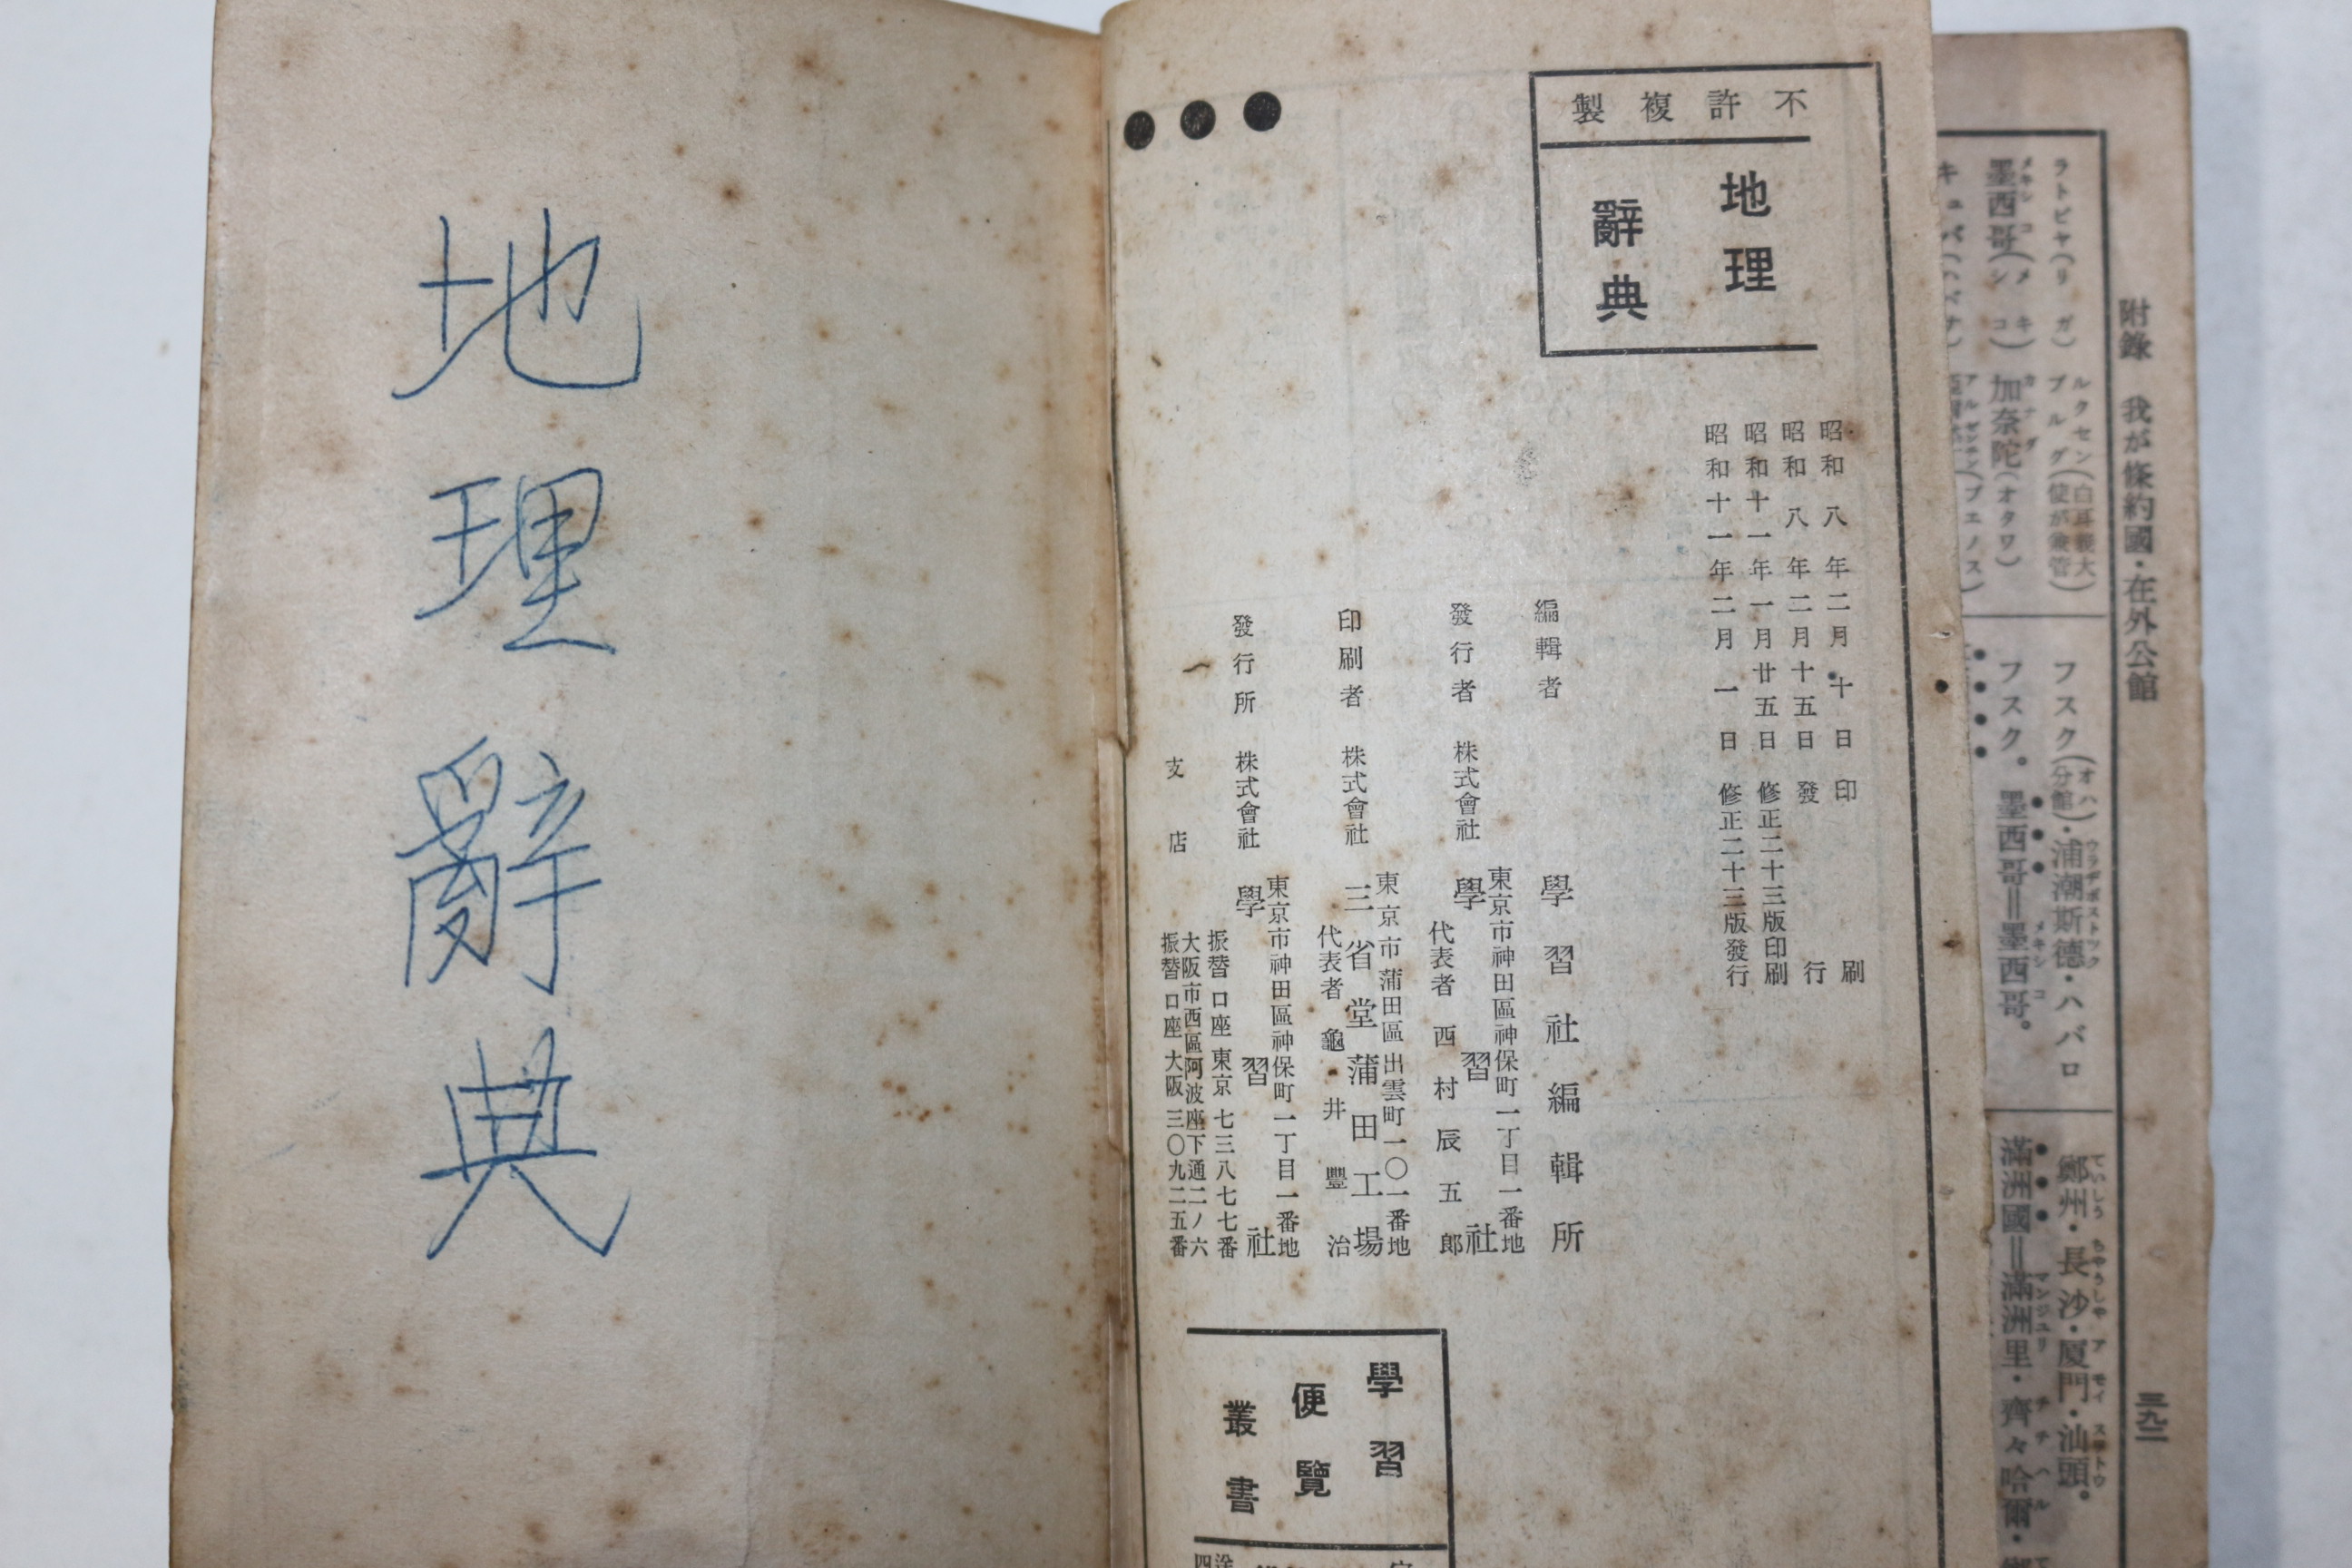 附錄 我が條約國・在外公館
三九二
ラトビヤ(リガ)
ルクセンブルグ(白耳義大使が兼管)
墨西哥(メキシコ)
メキシコ
加奈陀(オタワ)
カナダ
フスク(分館)・浦潮斯德・ハバロ
ウラヂボストツク
フスク。墨西哥=墨西哥。
メキシコ
鄭州・長沙・厦門・汕頭。
ていしう ちやうしや アモイ スワトウ
滿洲國=滿洲里・齊々哈爾・
マンジユリ チチハル
不許複製
地理
辭典
昭和八年二月十日印刷
昭和八年二月十五日發行
昭和十一年一月廿五日修正二十三版印刷
昭和十一年二月一日修正二十三版發行
編輯者 學習社編輯所
東京市神田區神保町一丁目一番地
發行者 株式會社 學習社
代表者 西村辰五郎
東京市蒲田區出雲町一〇一番地
印刷者 株式會社 三省堂蒲田工場
代表者 龜井豐治
東京市神田區神保町一丁目一番地
發行所 株式會社 學習社
振替口座東京七三八七七番
大阪市西區阿波座下通二ノ六
支店
振替口座大阪三〇九二五番
學習
便覽
叢書
地理辭典